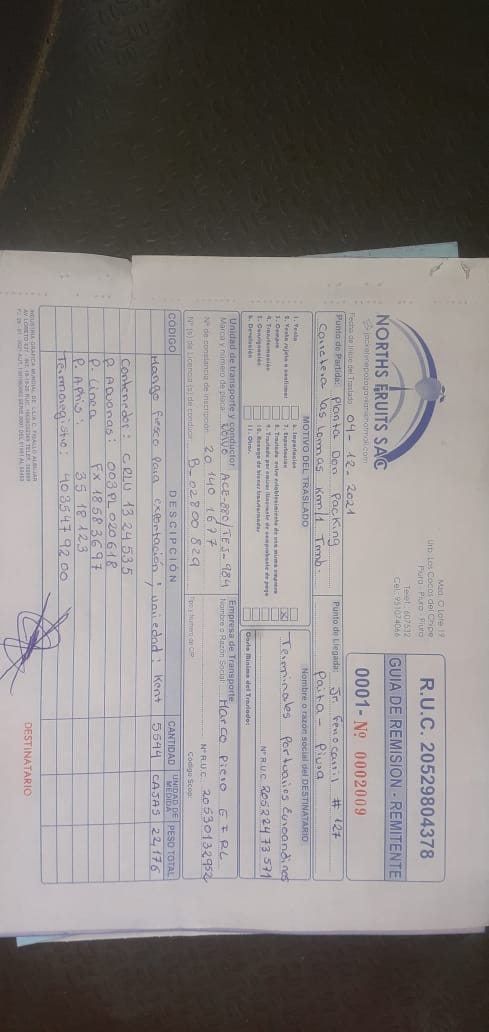 NORTHS FRUITS SAC
Mza. C Lote 19
Urb. Los Cocos del Chipe
Piura - Piura - Piura
Telef.: 607532
Cel.: 951074066
R.U.C. 20529804378
GUIA DE REMISION - REMITENTE
0001- Nº 0002009
Fecha de Inicio del Traslado: 04-12-2021
Punto de Partida: Planta Don Packing
Carretera las Lomas Km 1 Tamb.
Punto de Llegada: Jr. Ferrocarril # 127
Paita - Piura
MOTIVO DEL TRASLADO
1. Venta
2. Venta sujeta a confirmar
3. Compra
4. Transformación
5. Consignación
6. Devolución
6. Importación
7. Exportación
8. Traslado entre establecimiento de una misma empresa
9. Traslado por emisor itinerante de comprobante de pago
10. Recogo de bienes transformados
11. Otros
X
Nombre o razón social del DESTINATARIO
Terminales Portuarios Euroandinos
Nº R.U.C. 20522473571
Costo Mínimo del Traslado:
Unidad de transporte y conductor
Marca y número de placa: Volvo ACR-880/TES-984
Nº de constancia de inscripción: 20 140 1677
Nº (s) de Licencia (s) de conducir: B-02800829
Empresa de Transporte
Nombre o Razón Social: Marco Piero EIRL
Nº R.U.C. 20530132952
Tipo y Número de C/P
Código Scop:
CODIGO DESCIPCIÓN CANTIDAD UNIDAD DE MEDIDA PESO TOTAL
Mango fresco para exportación, variedad: Kent 5544 CAJAS 22,176
Contenedor: CRLU 1324535
P. Aduanas: 003PL020618
P. Línea FX18583617
P. Aphis: 3518123
Termoregistro: 4035479200
DESTINATARIO